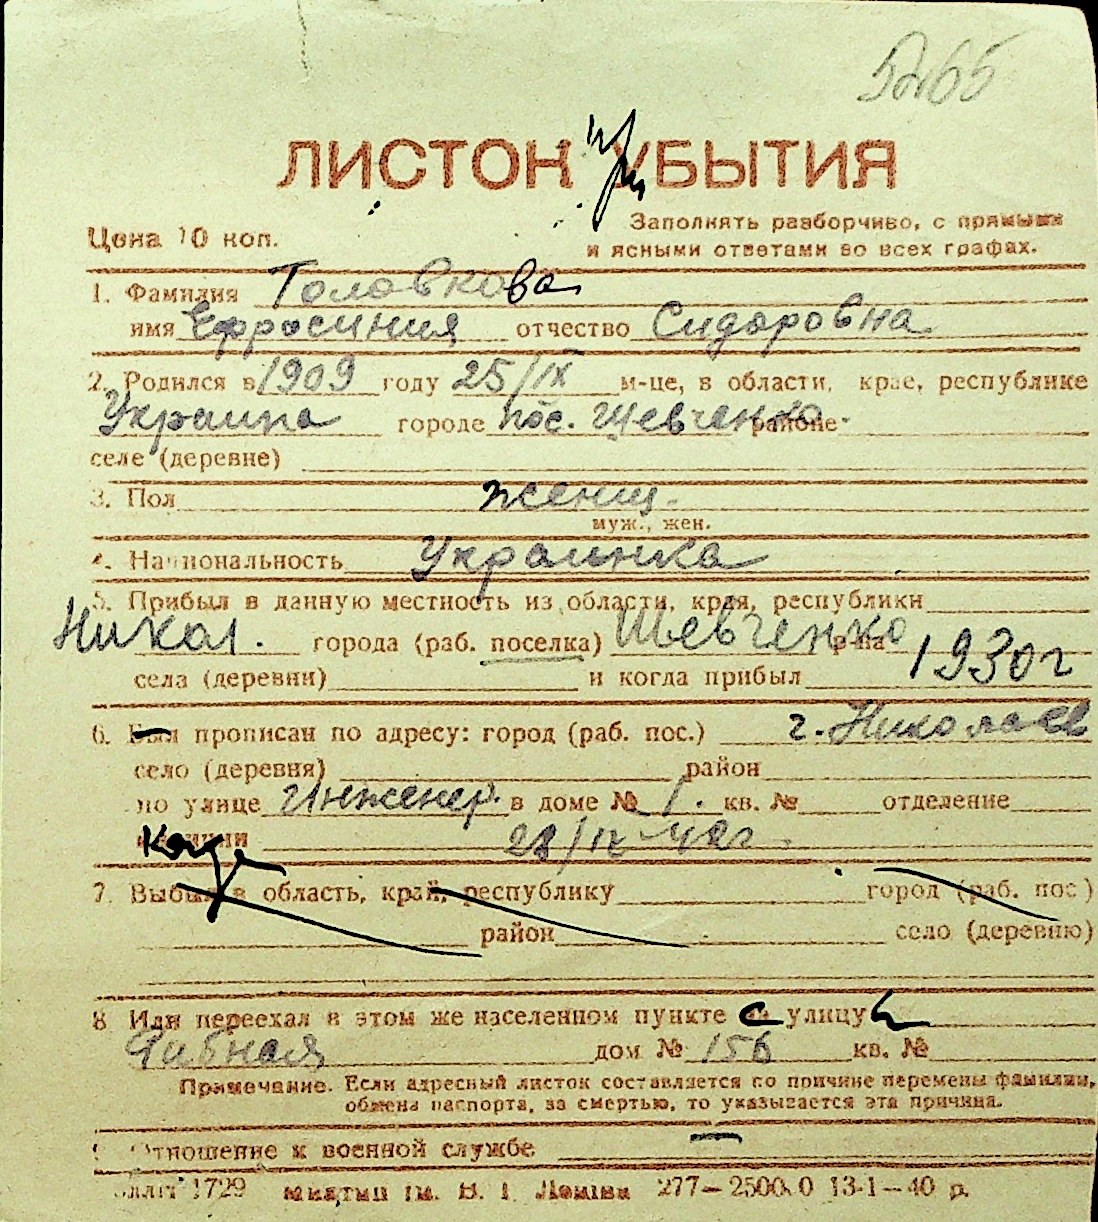 5265
ЛИСТОК УБЫТИЯ
Цена 10 коп.
Заполнять разборчиво, с прямыми
и ясными ответами во всех графах.
1. Фамилия Головкова
имя Ефросиния отчество Сидоровна
2. Родился в 1909 году 25/IX м-це, в области, крае, республике
Украина городе пос. Шевченко районе
селе (деревне)
3. Пол женщ.
муж., жен.
4. Национальность Украинка
5. Прибыл в данную местность из области, края, республики
Никол. города (раб. поселка) Шевченко р-на
села (деревни) и когда прибыл 1930 г
6. Был прописан по адресу: город (раб. пос.) г. Николаев
село (деревня) район
по улице Инженер. в доме № 1. кв. № отделение
милиции 28/IX 42 г.
7. Выбыл в область, край, республику город (раб. пос)
район село (деревню)
8 Или переехал в этом же населенном пункте на улицу
дом № 156 кв. №
Примечание. Если адресный листок составляется по причине перемены фамилии,
обмена паспорта, за смертью, то указывается эта причина.
9 Отношение к военной службе —
1729 277—2500.0 13-1—40 р.